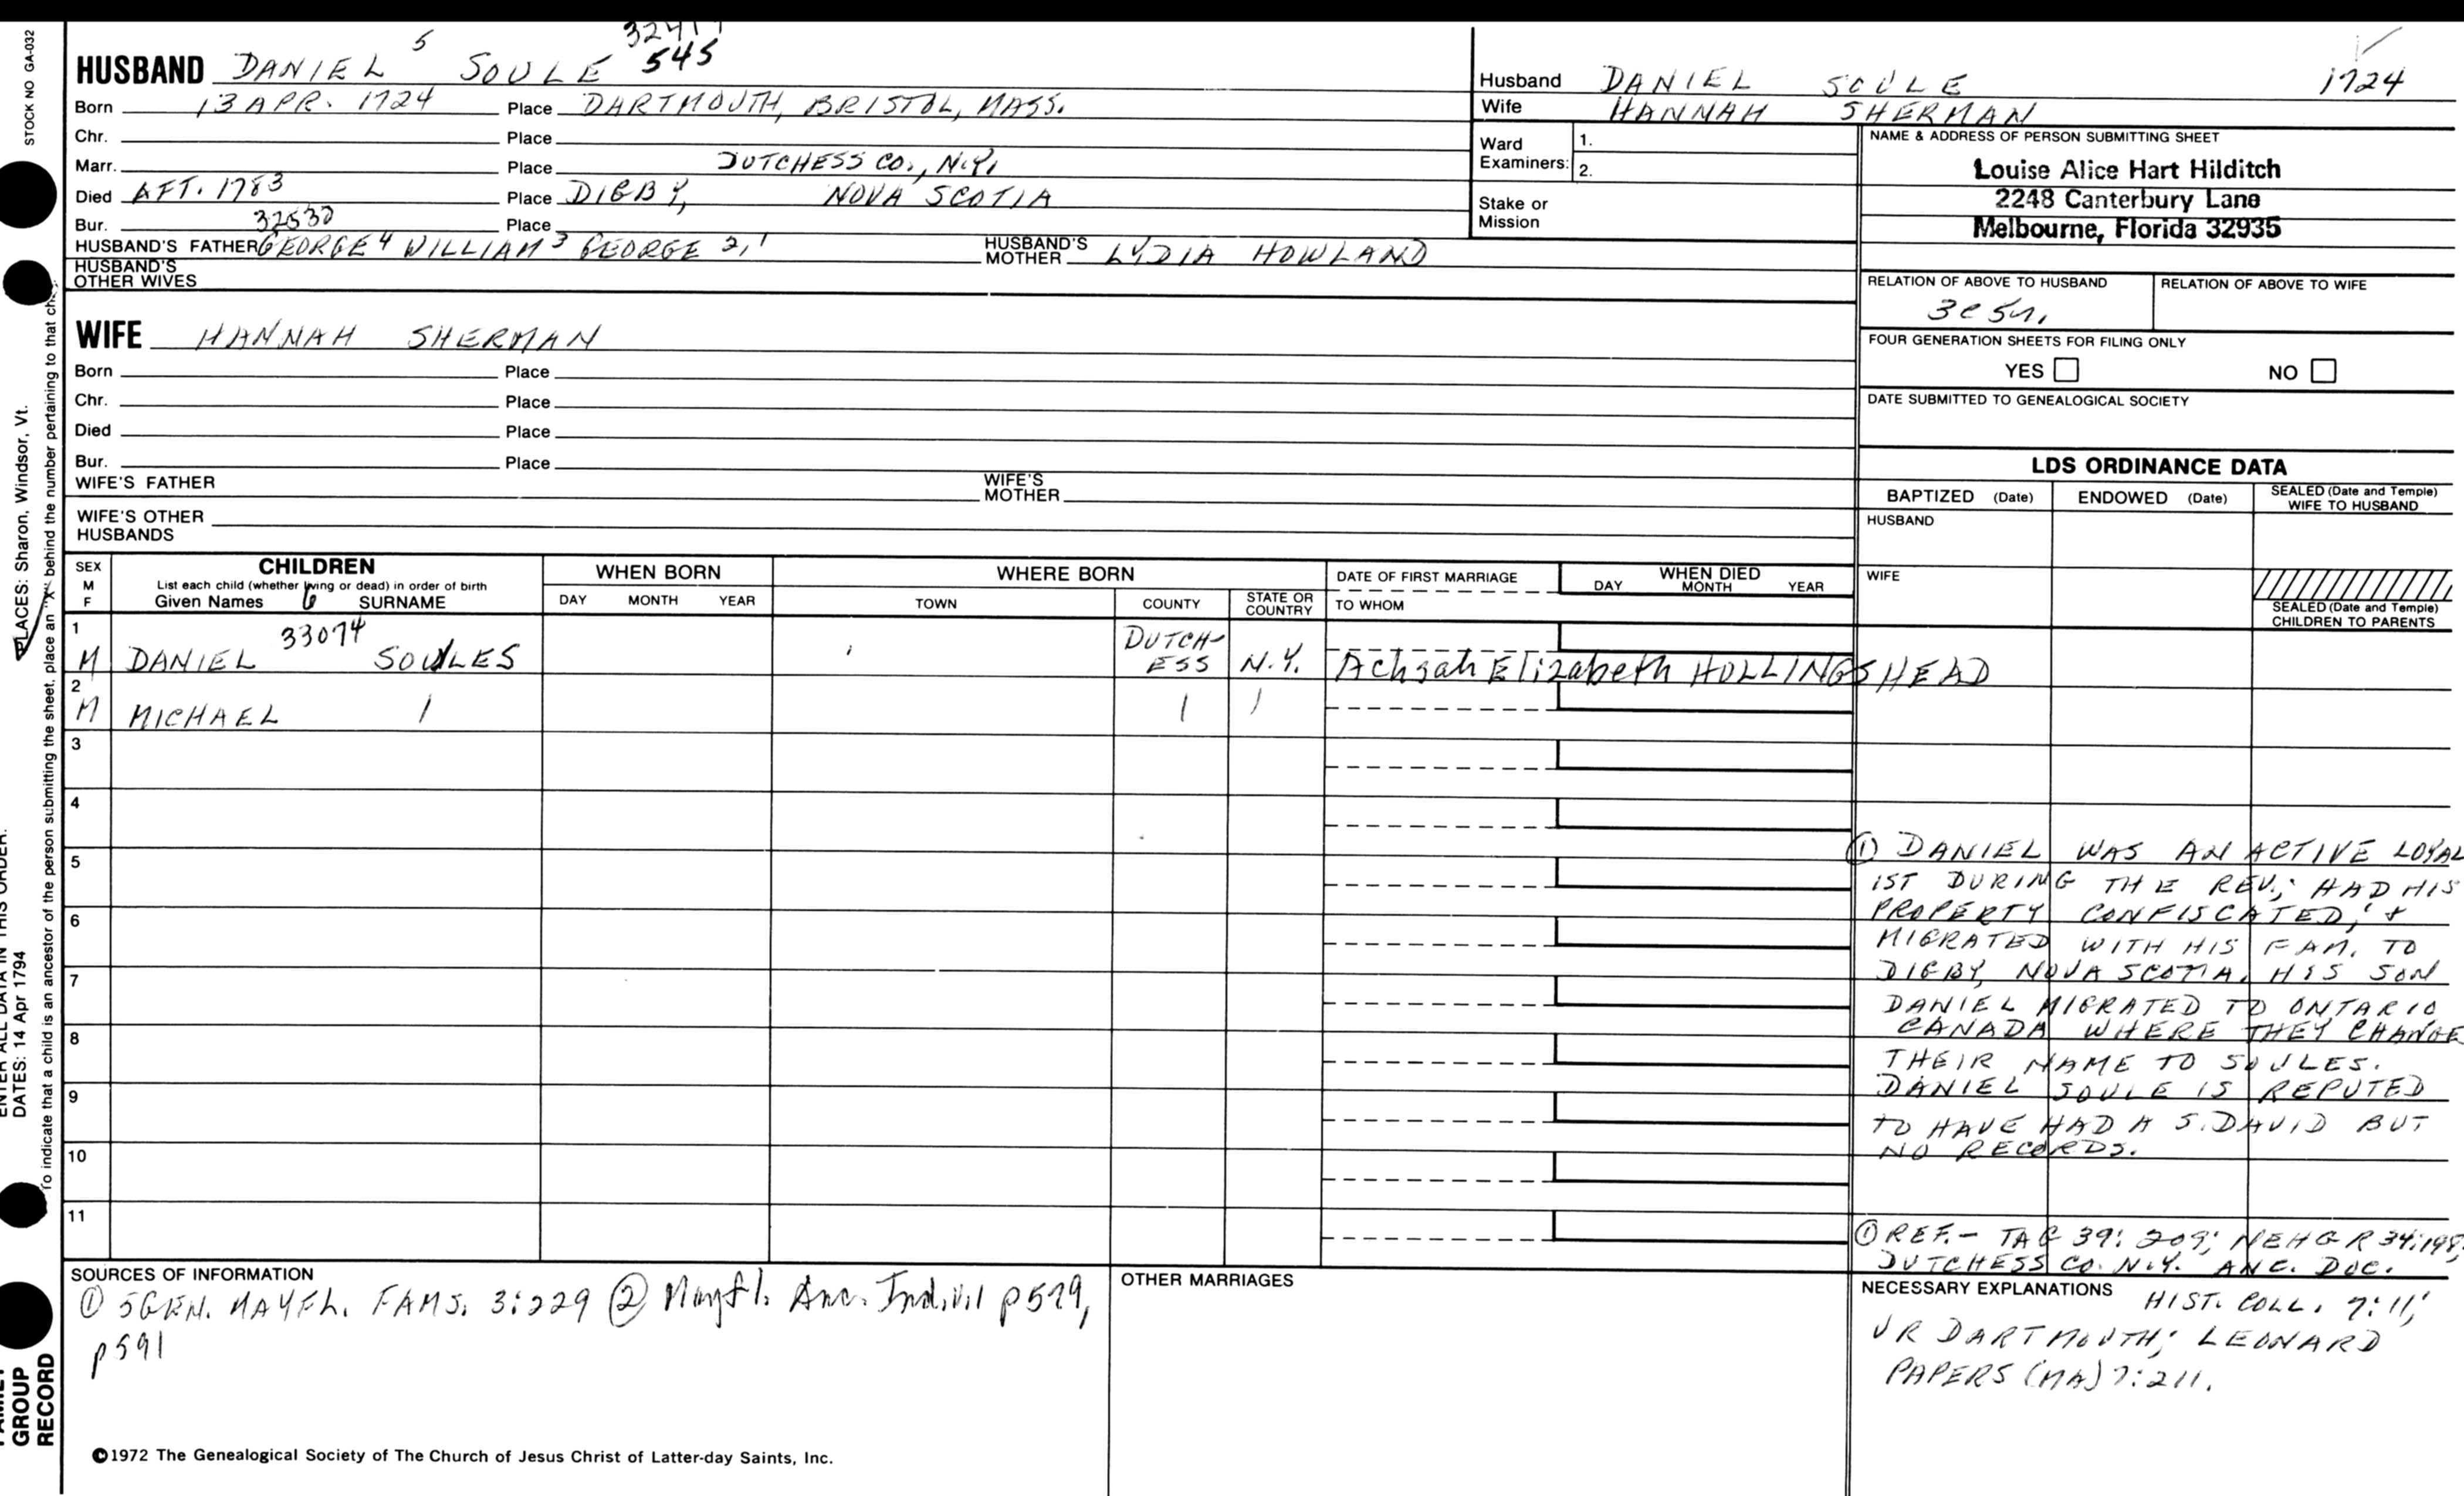 STOCK NO GA-032
32417
HUSBAND DANIEL 5 SOULE 545
Born 13 APR. 1724 Place DARTMOUTH, BRISTOL, MASS.
Chr. Place
Marr. Place DUTCHESS CO., N.Y.
Died AFT. 1783 Place DIGBY, NOVA SCOTIA
Bur. 32530 Place
HUSBAND'S FATHER GEORGE 4 WILLIAM 3 GEORGE 2,1 HUSBAND'S MOTHER LYDIA HOWLAND
HUSBAND'S OTHER WIVES
WIFE HANNAH SHERMAN
Born Place
Chr. Place
Died Place
Bur. Place
WIFE'S FATHER WIFE'S MOTHER
WIFE'S OTHER HUSBANDS
Husband DANIEL SOULE 1724
Wife HANNAH SHERMAN
Ward Examiners: 1.
2.
Stake or Mission
NAME & ADDRESS OF PERSON SUBMITTING SHEET
Louise Alice Hart Hilditch
2248 Canterbury Lane
Melbourne, Florida 32935
RELATION OF ABOVE TO HUSBAND RELATION OF ABOVE TO WIFE
FOUR GENERATION SHEETS FOR FILING ONLY
YES NO
DATE SUBMITTED TO GENEALOGICAL SOCIETY
LDS ORDINANCE DATA
BAPTIZED (Date) ENDOWED (Date) SEALED (Date and Temple) WIFE TO HUSBAND
HUSBAND
WIFE
SEALED (Date and Temple) CHILDREN TO PARENTS
SEX M F
CHILDREN
List each child (whether living or dead) in order of birth
Given Names 6 SURNAME
WHEN BORN
DAY MONTH YEAR
WHERE BORN
TOWN COUNTY STATE OR COUNTRY
DATE OF FIRST MARRIAGE
TO WHOM
WHEN DIED
DAY MONTH YEAR
1 M DANIEL 33074 SOULES DUTCHESS N.Y. Achsah Elizabeth HOLLINGSHEAD
2 M MICHAEL
3
4
5
6
7
8
9
10
11
① DANIEL WAS AN ACTIVE LOYAL
IST DURING THE REV.; HAD HIS
PROPERTY CONFISCATED; +
MIGRATED WITH HIS FAM. TO
DIGBY, NOVA SCOTIA. HIS SON
DANIEL MIGRATED TO ONTARIO
CANADA WHERE THEY CHANGE
THEIR NAME TO SOULES.
DANIEL SOULE IS REPUTED
TO HAVE HAD A S. DAVID BUT
NO RECORDS.
① REF.- TAG 39: 209; NEHGR 34:198;
DUTCHESS CO. N.Y. ANC. DOC.
NECESSARY EXPLANATIONS HIST. COLL. 7:11;
VR DARTMOUTH; LEONARD
PAPERS (MA) 7:211.
SOURCES OF INFORMATION
① 5GEN. MAYFL. FAMS. 3:229 ② Mayfl. Anc. p579,
p591
OTHER MARRIAGES
©1972 The Genealogical Society of The Church of Jesus Christ of Latter-day Saints, Inc.
PLACES: Sharon, Windsor, Vt.
ENTER ALL DATA IN THIS ORDER:
DATES: 14 Apr 1794
To indicate that a child is an ancestor of the person submitting the sheet, place an "X" behind the number pertaining to that
FAMILY GROUP RECORD